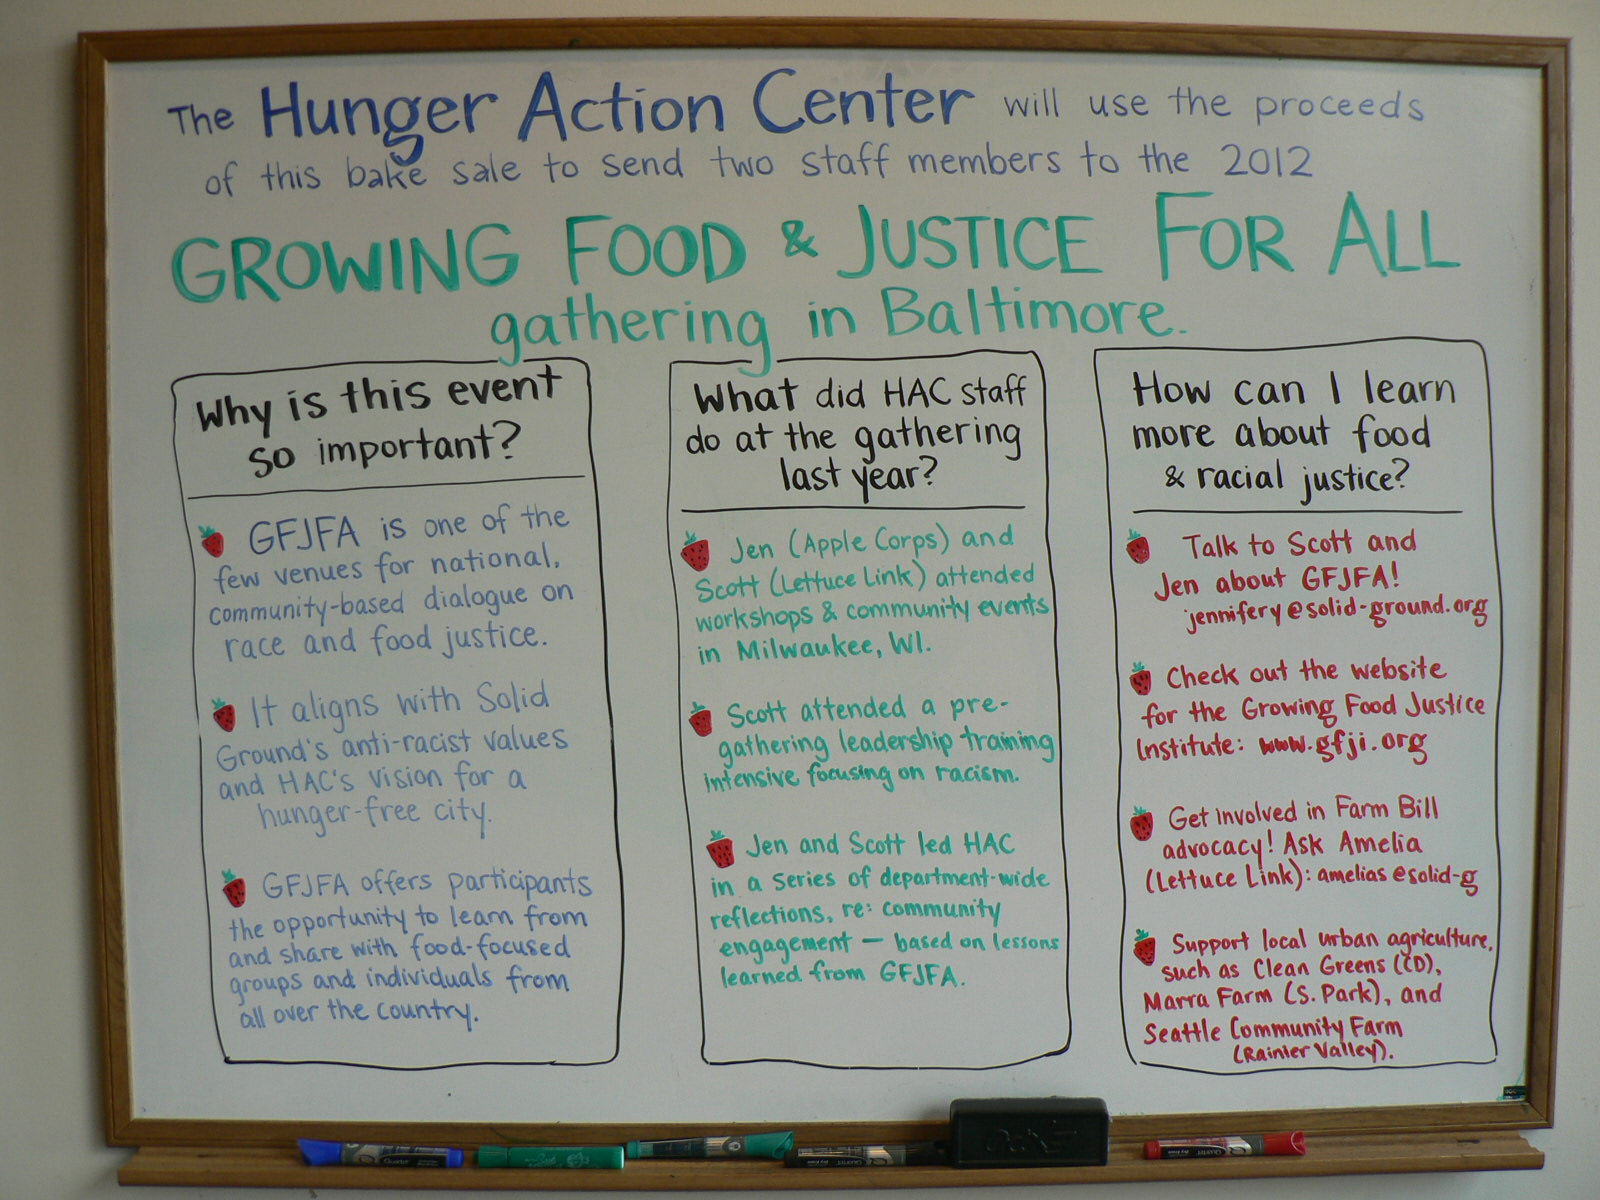 The Hunger Action Center will use the proceeds
of this bake sale to send two staff members to the 2012
GROWING FOOD & JUSTICE FOR ALL
gathering in Baltimore.
Why is this event
so important?
GFJFA is one of the
few venues for national,
community-based dialogue on
race and food justice.
It aligns with Solid
Ground's anti-racist values
and HAC's vision for a
hunger-free city.
GFJFA offers participants
the opportunity to learn from
and share with food-focused
groups and individuals from
all over the country.
What did HAC staff
do at the gathering
last year?
Jen (Apple Corps) and
Scott (Lettuce Link) attended
workshops & community events
in Milwaukee, WI.
Scott attended a pre-
gathering leadership training
intensive focusing on racism.
Jen and Scott led HAC
in a series of department-wide
reflections, re: community
engagement — based on lessons
learned from GFJFA.
How can I learn
more about food
& racial justice?
Talk to Scott and
Jen about GFJFA!
jennifery@solid-ground.org
Check out the website
for the Growing Food Justice
Institute: www.gfji.org
Get involved in Farm Bill
advocacy! Ask Amelia
(Lettuce Link): amelias@solid-g
Support local urban agriculture,
such as Clean Greens (CD),
Marra Farm (S. Park), and
Seattle Community Farm
(Rainier Valley).